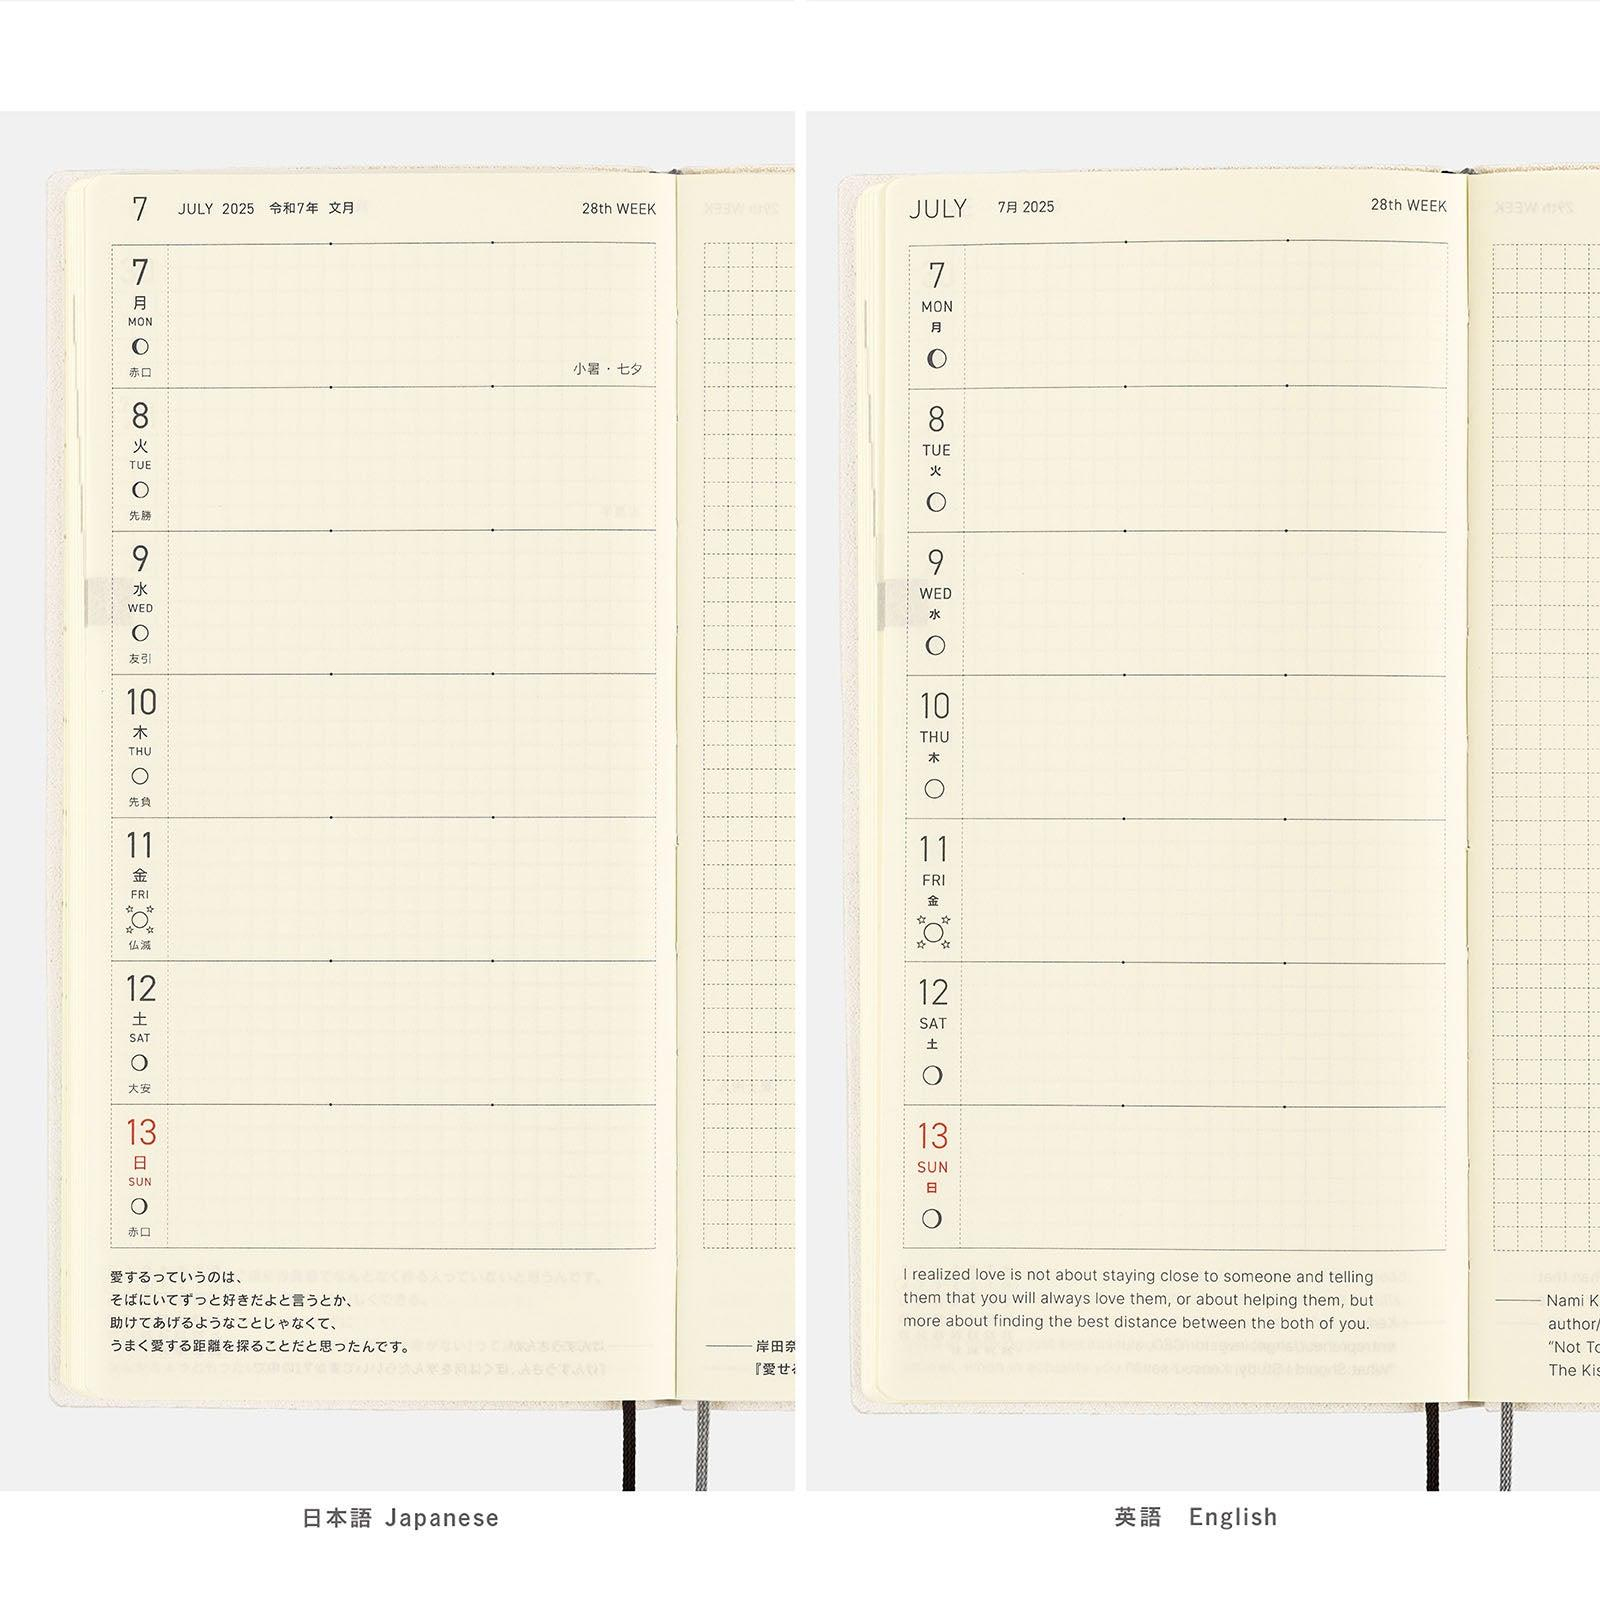 7 JULY 2025 令和7年 文月 28th WEEK
7
月
MON
赤口
小暑・七夕
8
火
TUE
先勝
9
水
WED
友引
10
木
THU
先負
11
金
FRI
仏滅
12
土
SAT
大安
13
日
SUN
赤口
愛するっていうのは、
そばにいてずっと好きだよと言うとか、
助けてあげるようなことじゃなくて、
うまく愛する距離を探ることだと思ったんです。
岸田奈
『愛せる
日本語 Japanese
JULY 7月 2025 28th WEEK
7
MON
月
8
TUE
火
9
WED
水
10
THU
木
11
FRI
金
12
SAT
土
13
SUN
日
I realized love is not about staying close to someone and telling
them that you will always love them, or about helping them, but
more about finding the best distance between the both of you.
Nami K
author/
“Not To
The Kis
英語 English